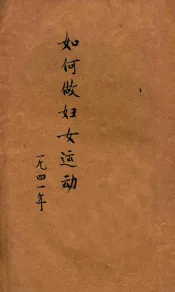 如何做妇女运动
一九四一年